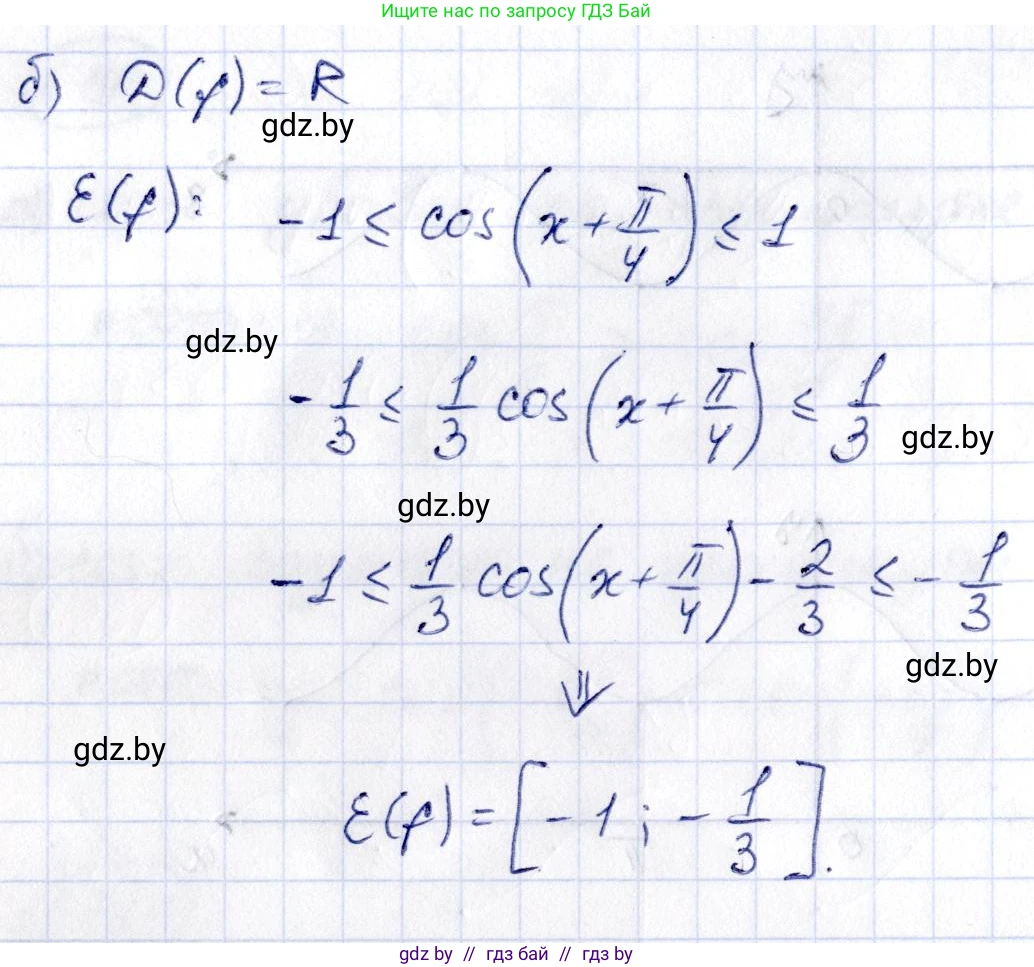 Ищите нас по запросу ГДЗ Бай
б) D(f) = R
gdz.by
E(f): -1 ≤ cos(x + π/4) ≤ 1
gdz.by
-1/3 ≤ 1/3 cos(x + π/4) ≤ 1/3
gdz.by
gdz.by
-1 ≤ 1/3 cos(x + π/4) - 2/3 ≤ -1/3
gdz.by
⇓
gdz.by
E(f) = [-1; -1/3].
gdz.by // гдз бай // gdz by